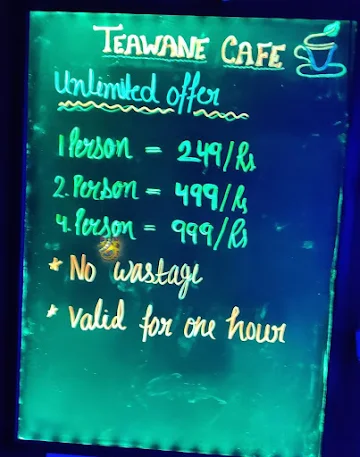 TEAWANE CAFE
Unlimited offer
1 Person = 249/Rs
2. Person = 499/Rs
4. Person = 999/Rs
* No wastage
* Valid for one hour